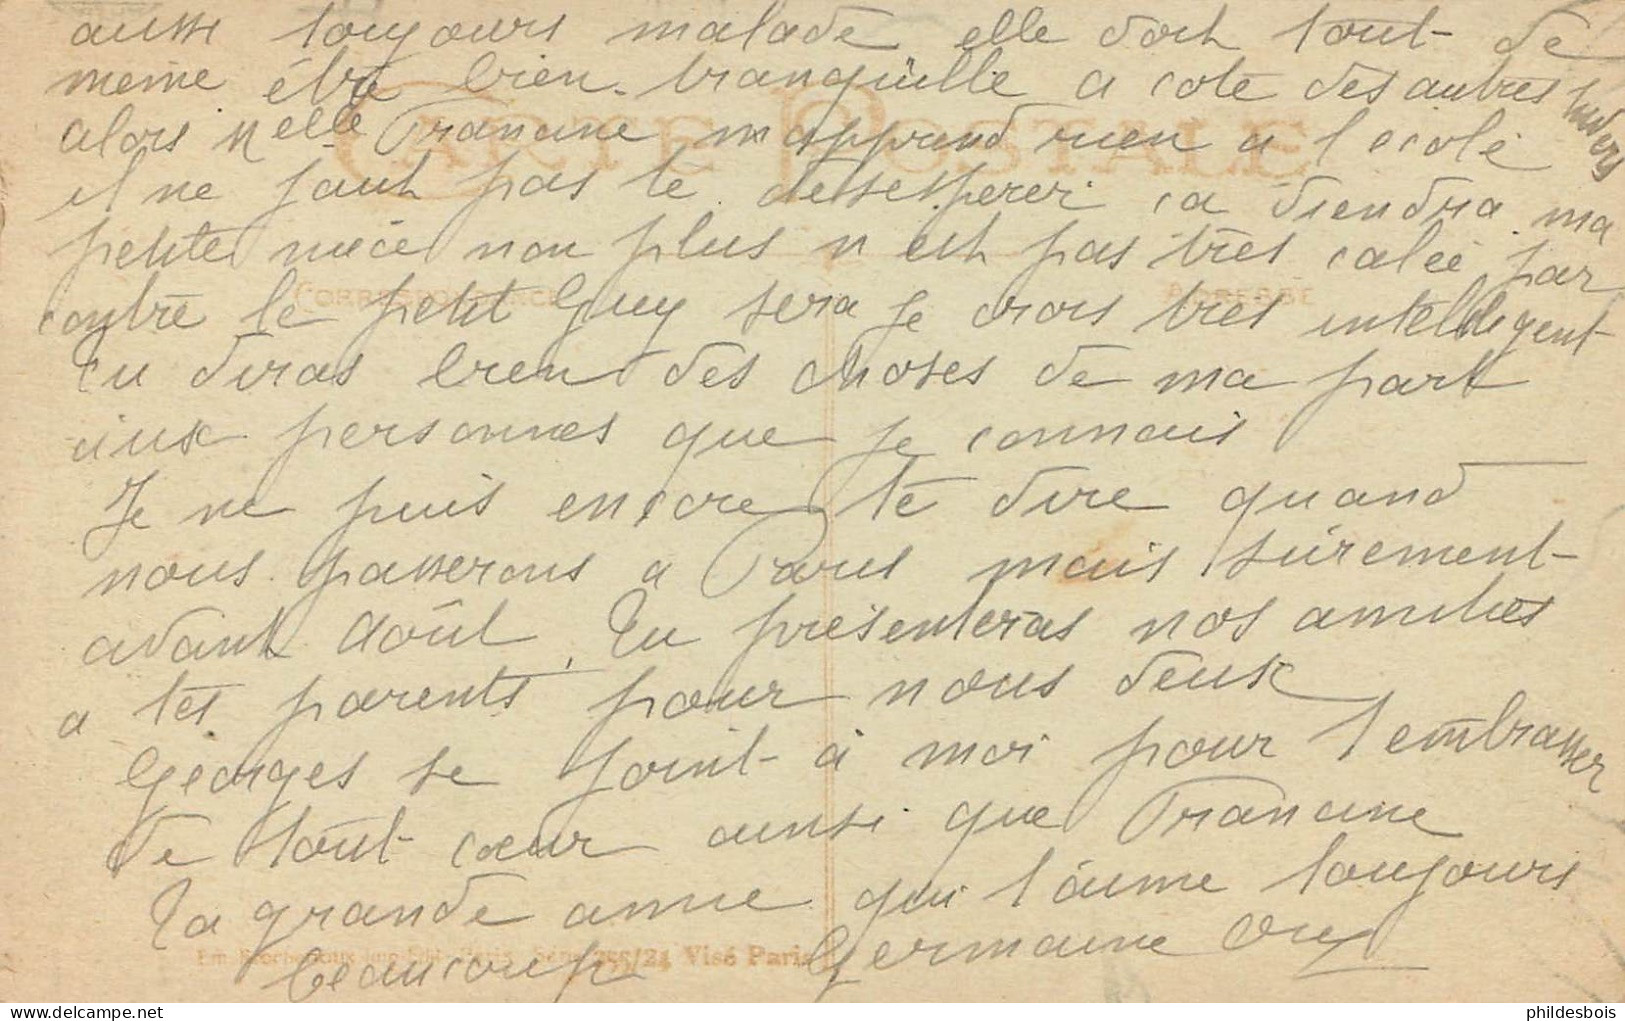 aussi toujours malade elle doit tout de
meme être bien tranquille a coté des autres
alors Melle Francine n apprend rien a l ecole
il ne faut pas te desesperer ca viendra ma
petite niece non plus n est pas très calée par
contre le petit Guy sera je crois très intelligent
tu diras bien des choses de ma part
aux personnes que je connais
Je ne puis encore te dire quand
nous passerons a Paris mais sûrement
avant Août. Tu présenteras nos amitiés
a tes parents pour nous deux
Georges se joint à moi pour t embrasser
de tout cœur ainsi que Francine
Ta grande amie qui t aime toujours
beaucoup Germaine
CARTE POSTALE
CORRESPONDANCE
ADRESSE
Visé Paris
phildesbois
delcampe.net